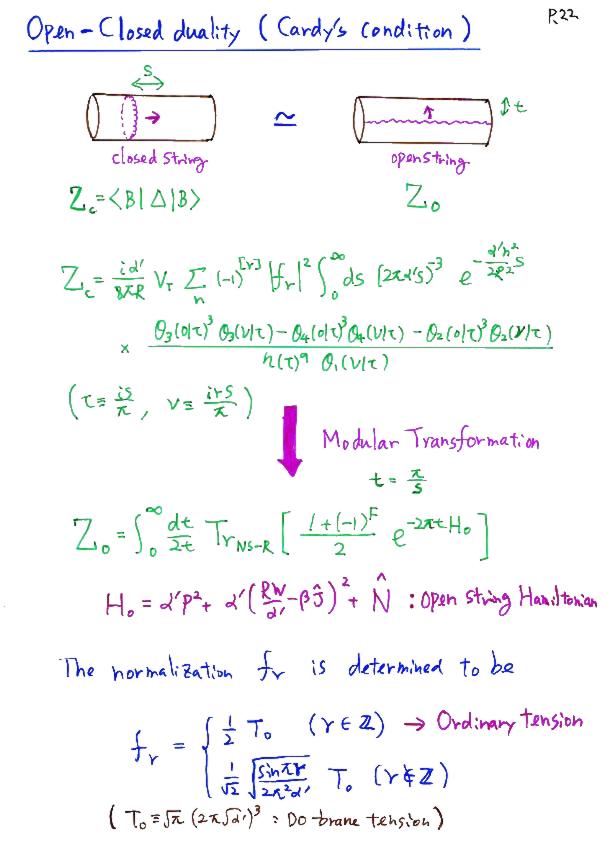 P.22
Open-Closed duality (Cardy's condition)
S
≃
t
closed string
open string
Z_c = <B|Δ|B>
Z_o
Z_c = \frac{iα'}{8πR} V_T Σ_n (-1)^{[r]} |f_r|^2 ∫_0^∞ ds (2πα's)^{-3} e^{-\frac{α'n^2}{2R^2}s}
× \frac{θ_3(0|τ)^3 θ_3(ν|τ) - θ_4(0|τ)^3 θ_4(ν|τ) - θ_2(0|τ)^3 θ_2(ν|τ)}{η(τ)^9 θ_1(ν|τ)}
(τ ≡ \frac{is}{π}, ν ≡ \frac{irs}{π})
Modular Transformation
t = \frac{π}{s}
Z_o = ∫_0^∞ \frac{dt}{2t} Tr_{NS-R} [ \frac{1+(-1)^F}{2} e^{-2πt H_o} ]
H_o = α'p^2 + α'(\frac{RW}{α'} - βĴ)^2 + N̂ : open string Hamiltonian
The normalization f_r is determined to be
f_r = { \frac{1}{2} T_o (r ∈ Z) → Ordinary tension
\frac{1}{√2} \sqrt{\frac{sin πr}{2π^2α'}} T_o (r ∉ Z)
(T_o ≡ √π (2π√α')^3 : D0-brane tension)